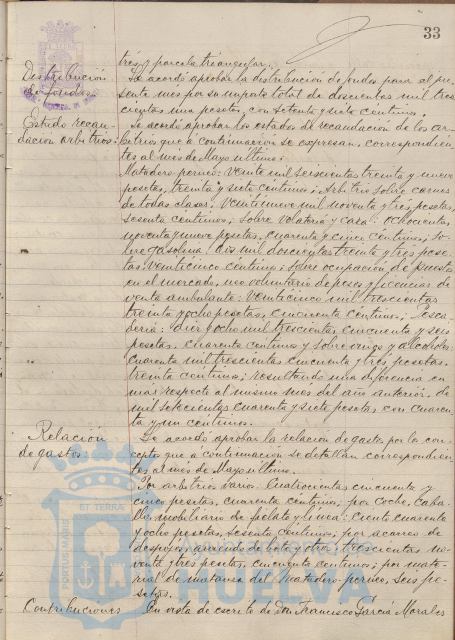 33
tres, y parcela triangular.
Distribución
de fondos
Se acordó aprobar la distribución de fondos para el pre-
sente mes por su importe total de doscientas mil tres
cientas una pesetas, con setenta y siete centimos.
Estado recau-
dacion arbitrios:
Se acordó aprobar los estados de recaudación de los ar-
bitrios que á continuación se expresan, correspondien-
tes al mes de Mayo ultimo:
Matadero porcino: Veinte mil seiscientas treinta y nueve
pesetas, treinta y siete centimos; Arbitrio sobre carnes
de todas clases: Veintinueve mil noventa y tres pesetas,
sesenta centimos; sobre volateria y caza: ochocientas
noventa y nueve pesetas, cuarenta y cinco centimos; so-
bre gasolina: Dis mil doscientas treinta y tres pese-
tas, veinticinco centimos; sobre ocupación de puestos
en el mercado, uso voluntario de pesas y licencias de
venta ambulante: Veinticinco mil trescientas
treinta y ocho pesetas, cincuenta centimos; Pesca-
deria: diez y ocho mil trescientas, cincuenta y seis
pesetas, cuarenta centimos y sobre vinos y alcoholes:
cuarenta mil trescientas cincuenta y tres pesetas.
treinta centimos; resultando una diferencia en
mas respecto al mismo mes del año anterior de
mil setecientas cuarenta y siete pesetas con cuaren-
ta y un centimos.
Relación
de gastos
Se acordó aprobar la relación de gastos por los con-
ceptos que a continuación se detallan correspondien-
tes al mes de Mayo ultimo.
Por arbitrios varios: Cuatrocientas cincuenta y
cinco pesetas, cuarenta centimos; por coche, caba-
llo, mobiliario de fielato y linea: Ciento cuarenta
y ocho pesetas, sesenta centimos; por acarreo de
despojos, arriendo de bota y otros: trescientas no-
venta y tres pesetas, cincuenta centimos; por mate-
rial de matanza del Matadero porcino, seis pe-
setas.
Contribuciones
En vista de escrito de Don Francisco García Morales
PORTUS MARIS
ET TERRA
HUELVA